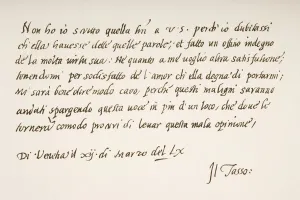 Non ho io scritto quella lra a V.S. perch'io dubitassi
ch'ella hauesse dette quelle parole; et fatto un officio indegno
de la molta uirtù sua: Né quanto a me uoglio altra satisfatione;
tenendomi per sodisfatto de l'amor ch'ella degna di portarmi;
mi sarà bene oltre modo caro, perché questi maligni saranno
andati spargendo questa uoce in più d'un loco, che doue le
tornerà comodo procuri di leuar questa mala opinione;
Di Venetia il xij. di Marzo del LX
Il Tasso: